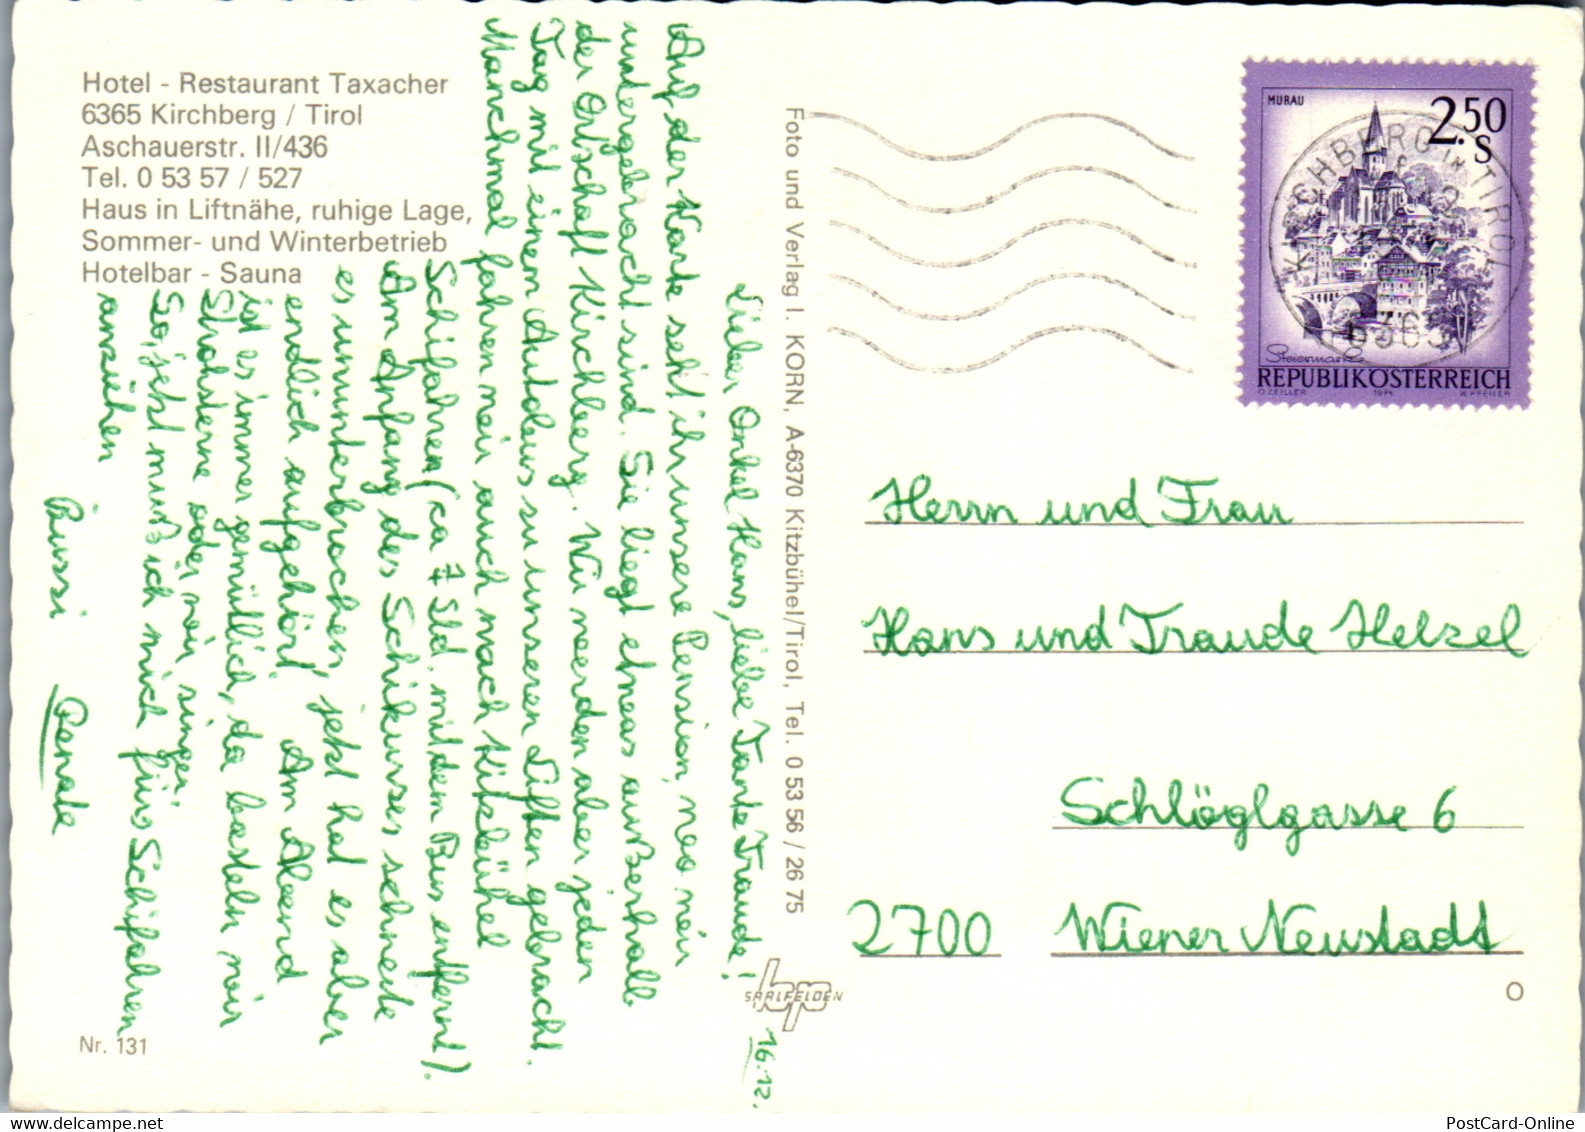 Hotel - Restaurant Taxacher
6365 Kirchberg / Tirol
Aschauerstr. II/436
Tel. 0 53 57 / 527
Haus in Liftnähe, ruhige Lage,
Sommer- und Winterbetrieb
Hotelbar - Sauna
16.12.
Lieber Onkel Hans, liebe Tante Traude!
Auf der Karte seht ihr unsere Pension, wo wir
untergebracht sind. Sie liegt etwas außerhalb
der Ortschaft Kirchberg. Wir werden aber jeden
Tag mit einem Autobus zu unseren Liften gebracht.
Manchmal fahren wir auch nach Kitzbühel
Schifahren (ca 7 Std. mit dem Bus entfernt).
Am Anfang des Schikurses schneite
es ununterbrochen, jetzt hat es aber
endlich aufgehört. Am Abend
ist es immer gemütlich, da basteln wir
Strohsterne oder wir singen.
So, jetzt muß ich mich fürs Schifahren
anziehen
Bussi Renate
Nr. 131
Foto und Verlag I. KORN, A-6370 Kitzbühel/Tirol, Tel. 0 53 56 / 26 75
bp
SAALFELDEN
MURAU
2.50
S
KIRCHBERG in TIROL
6365
Steiermark
REPUBLIK ÖSTERREICH
O. ZEILLER 1974 W. PFEILER
Herrn und Frau
Hans und Traude Hetzel
Schlöglgasse 6
2700 Wiener Neustadt
O
PostCard-Online